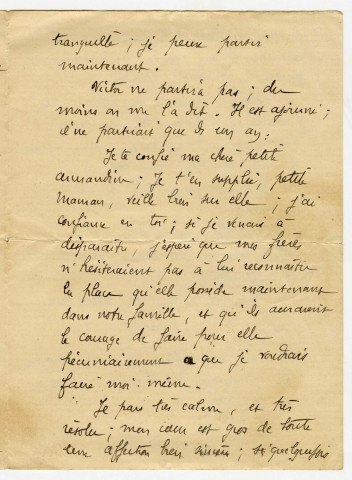 tranquille ; je peux partir
maintenant.
Victor ne partira pas ; du
moins on me l'a dit. Il est ajourné ;
il ne partirait que ds un an.
Je te confie ma chère petite
Amandine ; je t'en supplie, petite
Maman, veille bien sur elle ; j'ai
confiance en toi ; si je venais à
disparaître, j'espère que mes frères
n'hésiteraient pas à lui reconnaître
la place qu'elle possède maintenant
dans notre famille, et qu'ils auraient
le courage de faire pour elle
pécuniairement que je voudrais
faire moi-même.
Je pars très calme, et très
résolu ; mon cœur est gros de toute
une affection bien sincère ; si quelquefois